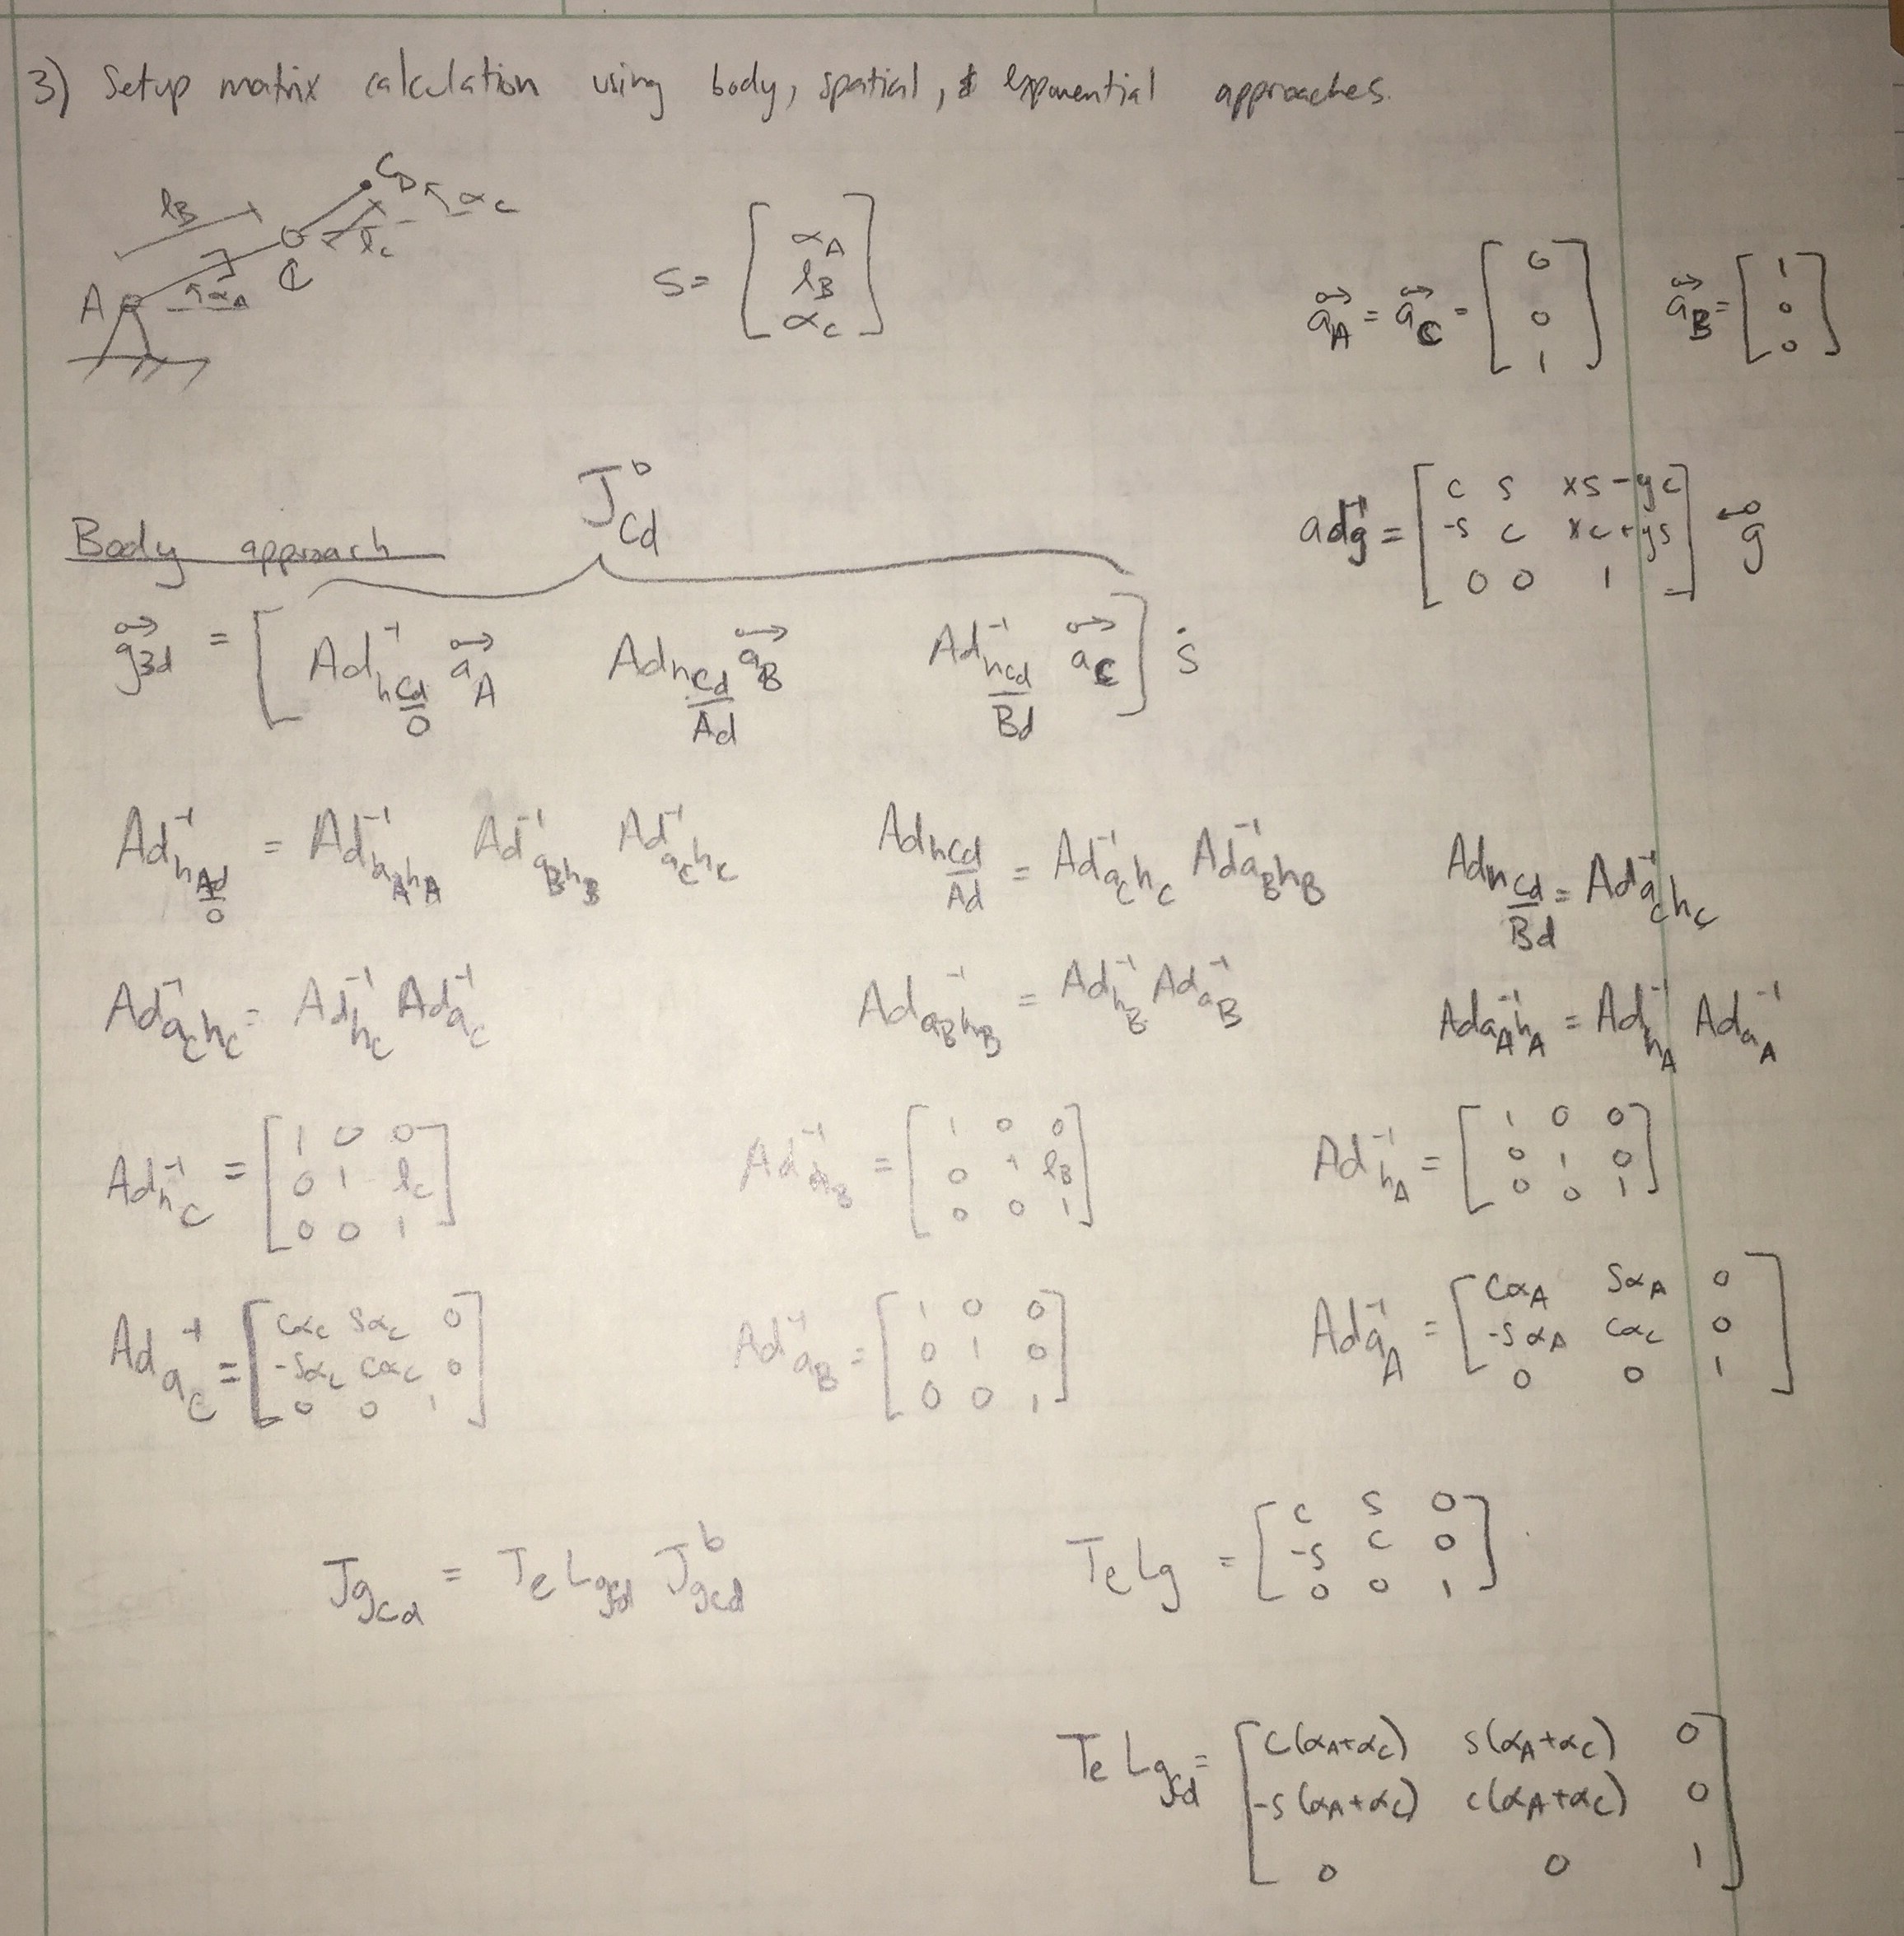 3) Setup matrix calculation using body, spatial, & exponential approaches.
l_B C D α_C
l_C
A α_A C
S = [α_A; l_B; α_C]
a⃗_A = a⃗_C = [0; 0; 1] a⃗_B = [1; 0; 0]
J^b_Cd
Body approach
ad_g^-1 = [c s xs-yc; -s c xc+ys; 0 0 1] g
g_Bd = [Ad^-1_h Cd/0 a⃗_A Ad_h Cd/Ad a⃗_B Ad^-1_h Cd/Bd a⃗_C] ṡ
Ad^-1_h Ad/0 = Ad^-1_a_A h_A Ad^-1_a_B h_B Ad^-1_a_C h_C
Ad_h Cd/Ad = Ad^-1_a_C h_C Ad^-1_a_B h_B
Ad_h Cd/Bd = Ad^-1_a_C h_C
Ad^-1_a_C h_C = Ad^-1_h_C Ad^-1_a_C
Ad^-1_a_B h_B = Ad^-1_h_B Ad^-1_a_B
Ad^-1_a_A h_A = Ad^-1_h_A Ad^-1_a_A
Ad^-1_h_C = [1 0 0; 0 1 l_C; 0 0 1]
Ad^-1_h_B = [1 0 0; 0 1 l_B; 0 0 1]
Ad^-1_h_A = [1 0 0; 0 1 0; 0 0 1]
Ad^-1_a_C = [cα_C sα_C 0; -sα_C cα_C 0; 0 0 1]
Ad^-1_a_B = [1 0 0; 0 1 0; 0 0 1]
Ad^-1_a_A = [cα_A sα_A 0; -sα_A cα_C 0; 0 0 1]
J_g_Cd = T_e L_g_Cd J^b_g_Cd
T_e L_g = [c s 0; -s c 0; 0 0 1]
T_e L_g_Cd = [c(α_A+α_C) s(α_A+α_C) 0; -s(α_A+α_C) c(α_A+α_C) 0; 0 0 1]